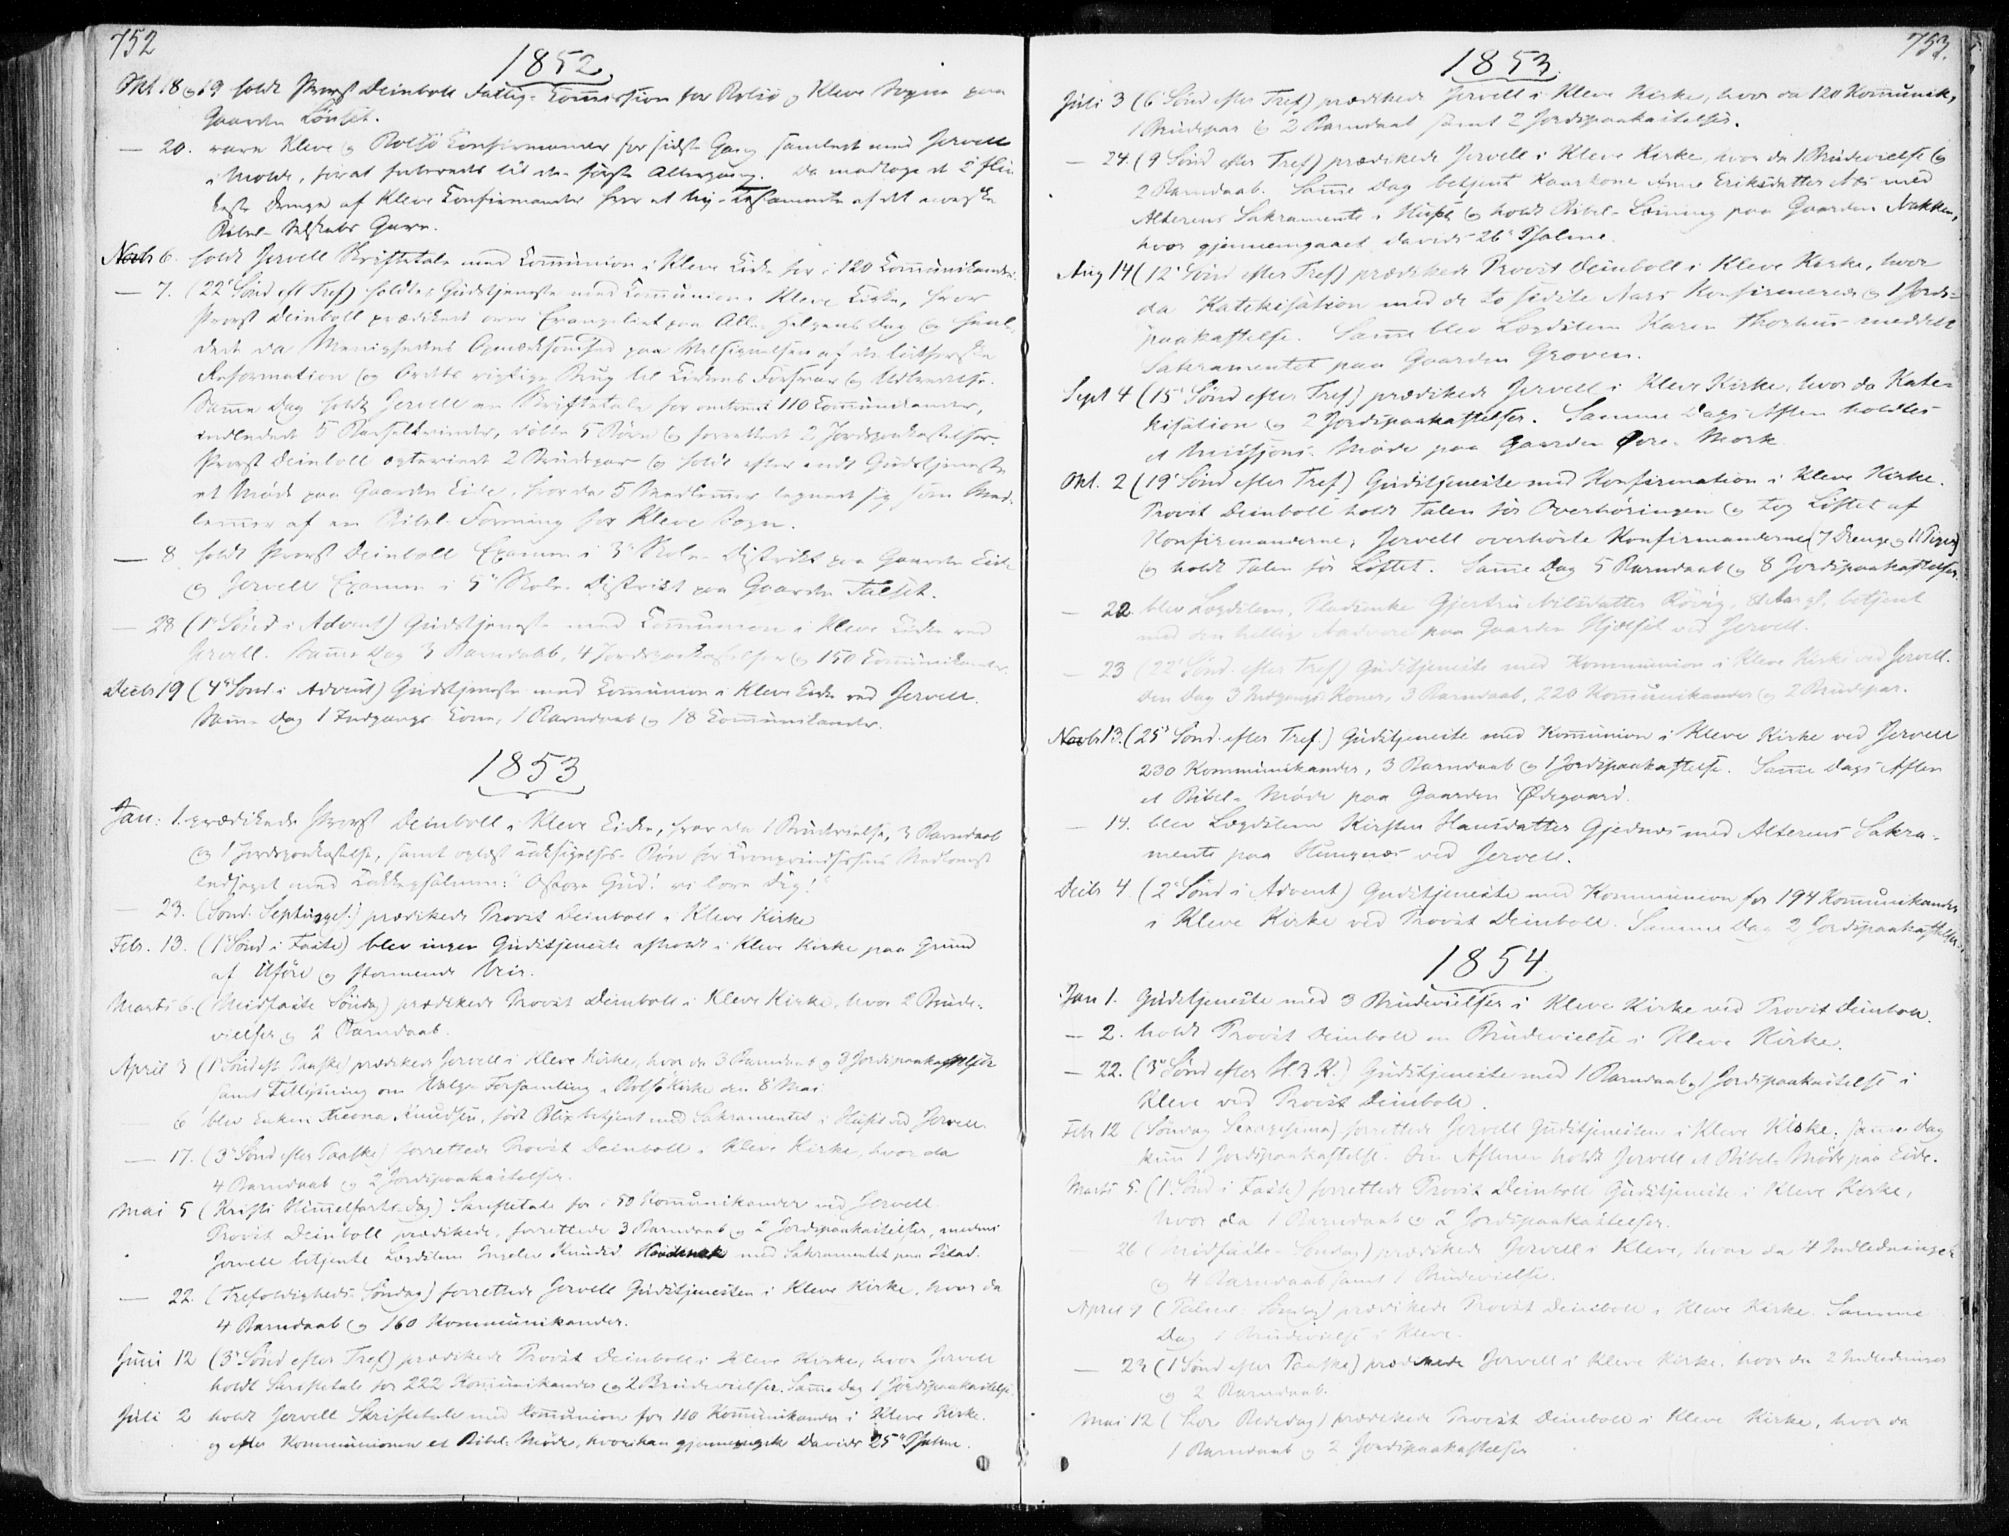 752
1852
Okt 18 og 19 holdt Provst Deinboll Fattig-Commission for Bolsø og Kleve Sogne paa
Gaarden Lönset.
— 20. vare Kleve og Bolsö Confirmander for sidste Gang samlede med Jervell
i Molde, for at forberedes til den første Altergang. Da modtoge de 2 flin
keste Drenge af Kleve Confirmander hver et Ny-Testamente af det norske
Bibel-Selskabs Gave.
Novb 6. holdt Jervell Skriftetale med Communion i Kleve Kirke for 120 Communikander.
— 7. (22 Sönd eft Tref) holdtes Gudstjeneste med Communion i Kleve Kirke, hvor
Provst Deinboll prædikede over Evangeliet paa Alle Helgens Dag og
da Menighedens Opmærksomhed paa Velsignelsen af den lutherske
Reformation og Ordets rigtige Brug til Kirkens Forsvar og
Samme Dag holdt Jervell en Skriftetale for omtrent 110 Communikander,
indledede 5 Barselkvinder, döbte 5 Börn og forrettede 2 Jordspaakastelser.
Provst Deinboll egteviede 2 Brudepar og holdt efter endt Gudstjeneste
et Møde paa Gaarden Eide, hvor da 5 Medlemmer tegnede sig som Med-
lemmer af en Bibel-Forening for Kleve Sogn.
— 8. holdt Provst Deinboll Examen i 3 Skole-Distrikt paa Gaarden Eide
og Jervell Examen i 5 Skole-Distrikt paa Gaarden Talset.
— 28 (1 Sönd i Advent) Gudstjeneste med Communion i Kleve Kirke ved
Jervell. Samme Dag 3 Barndaab, 4 Jordspaakastelser og 150 Communikander.
Decbr 19 (4 Sönd i Advent) Gudstjeneste med Communion i Kleve Kirke ved Jervell.
Samme Dag 1 Indgangs Kone, 1 Barndaab og 18 Communikander.
1853
Jan: 1. prædikede Provst Deinboll i Kleve Kirke, hvor da 1 Brudevielse, 3 Barndaab
og 1 Jordspaakastelse, samt oplæst Taksigelses-Bön for Kronprindsessens Nedkomst
ledsaget med Takkepsalmen: "O store Gud! vi love dig!"
— 23. (Sönd. Septuages.) prædikede Provst Deinboll i Kleve Kirke
Febr. 13. (1 Sönd i Faste) blev ingen Gudstjeneste afholdt i Kleve Kirke paa Grund
af Uföre og stormende Veir.
Marts 6. (Midfaste Söndag) prædikede Provst Deinboll i Kleve Kirke, hvor 2 Brude-
vielser og 2 Barndaab.
April 3 (1 Sönd eft. Paaske) prædikede Jervell i Kleve Kirke, hvor da 3 Barndaab og 3 Jordspaakastelser
samt Tillysning om Valgs Forsamling i Bolsø Kirke den 8 Mai
6 blev Enken Knudsen, födt Blix betjent med Sakramentet i Huset ved Jervell.
— 17. (3 Sönd efter Paaske) forrettede Provst Deinboll i Kleve Kirke, hvor da
4 Barndaab og 2 Jordspaakastelser.
Mai 5 (Kristi Himmelfarts-dag) Skriftetale for 50 Kommunikander ved Jervell
Provst Deinboll prædikede, forrettede 3 Barndaab og 2 Jordspaakastelser, medens
Jervell betjente Lægdslem Ingeler Knudsd. med Sakramentet paa Istad.
— 22. (Trefoldigheds-Söndag) forrettede Jervell Gudstjenesten i Kleve Kirke, hvor da
4 Barndaab og 160 Kommunikander.
Juni 12 (3 Sönd efter Tref) prædikede Provst Deinboll i Kleve Kirke, hvor Jervell
holdt Skriftetale for 222 Kommunikander og 2 Brudevielser. Samme Dag 1 Jordspaakastelse.
Juli 2 holdt Jervell Skriftetale med Communion for 110 Kommunikander i Kleve Kirke.
og efter Kommunionen et Bibel-Möde, hvor han gjennemgik Davids 25 Psalme.
753.
1853
Juli 3 (6 Sönd efter Tref) prædikede Jervell i Kleve Kirke, hvor da 120 Kommunik,
1 Brudepar og 2 Barndaab samt 2 Jordspaakastelser.
— 24. (9 Sönd efter Tref) prædikede Jervell i Kleve Kirke, hvor da 1 Brudevielse og
2 Barndaab. Samme Dag betjent Kaarkone Anne Eriksdatter Næs med
Alterens Sakramente i Huset og holdt Bibel-Læsning paa Gaarden Nakken,
hvor gjennemgaaet Davids 26 Psalme.
Aug 14 (12 Sönd efter Tref) prædikede Provst Deinboll i Kleve Kirke, hvor
da Katekisation med de to sidste Aars Konfirmerede og 1 Jords-
paakastelse. Samme blev Lægdslem Karen Thorhus meddelt
Sakramentet paa Gaarden Groven.
Sept 4 (15 Sönd efter Tref) prædikede Jervell i Kleve Kirke, hvor da Kate-
kisation og 2 Jordspaakastelser. Samme Dags Aften holdtes
et Missions-Möde paa Gaarden Øvre-Mork
Okt. 2 (19 Sönd efter Tref) Gudstjeneste med Konfirmation i Kleve Kirke.
Provst Deinboll holdt Talen før Overhöringen og tog Löftet af
Konfirmanderne; Jervell overhörte Konfirmanderne (7 Drenge og 11 Piger)
og holdt Talen för Löftet. Samme Dag 5 Barndaab og 8 Jordspaakastelser.
— 22. blev Lægdslem, Pladsenke Gjertru Nilsdatter Rövig, 81 Aar gl. betjent
med den hellige Nadvere paa Gaarden Hjelset ved Jervell.
— 23 (22 Sönd. efter Tref) Gudstjeneste med Kommunion i Kleve Kirke ved Jervell.
Den Dag 3 Indgangs Koner, 3 Barndaab, 220 Kommunikander og 2 Brudepar.
Novb 13. (25 Sönd. efter Tref.) Gudstjeneste med Kommunion i Kleve Kirke ved Jervell
230 Kommunikander, 3 Barndaab og 1 Jordspaakastelse. Samme Dags Aften
et Bibel-Möde paa Gaarden Ødegaard.
— 14. blev Lægdslem Kirsten Hansdatter Gjednes med Alterens Sakra-
mente paa Hungnes ved Jervell.
Decbr 4. (2 Sönd i Advent) Gudstjeneste med Kommunion for 194 Kommunikander
i Kleve Kirke ved Provst Deinboll. Samme Dag 2 Jordspaakastelser.
1854
Jan 1. Gudstjeneste med 3 Brudevielser i Kleve Kirke ved Provst Deinboll.
— 2. holdt Provst Deinboll en Brudevielse i Kleve Kirke.
— 22. (3 Sönd efter H.3.K.) Gudstjeneste med 1 Barndaab og 1 Jordspaakastelse i
Kleve ved Provst Deinboll.
Febr 12 (Söndag Sexagesima) forrettede Jervell Gudstjenesten i Kleve Kirke. Samme Dag
kun 1 Jordspaakastelse. Om Aftenen holdt Jervell et Bibel-Möde paa Eide.
Marts 5. (1 Sönd i Faste) forrettede Provst Deinboll Gudstjeneste i Kleve Kirke,
hvor da 1 Barndaab og 2 Jordspaakastelser.
— 26 (Midfaste-Söndag) prædikede Jervell i Kleve, hvor da 4 Indledninger
og 4 Barndaab samt 1 Brudevielse.
April 9 (Palme-Söndag) prædikede Provst Deinboll i Kleve Kirke. Samme
Dag 1 Brudevielse i Kleve.
— 23 (1 Sönd efter Paaske) prædikede Jervell i Kleve Kirke, hvor da 2 Indledninger
og 2 Barndaab.
Mai 12 (Store Bededag) prædikede Provst Deinboll i Kleve Kirke, hvor da
1 Barndaab og 2 Jordspaakastelser